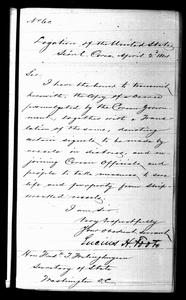 No. 60
Legation of the United States,
Seoul, Corea, April 2d 188
Sir:
I have the honor to transmit
herewith, the copy of a
promulgated by the Corean Gov-
ernment, together with a Trans-
lation of the same, denoting
certain signals to be made by
vessels in distress, and en-
joining Corean Officials and
people to take measures to save
life and property from ship-
wrecked vessels.
I am, Sir,
Very respectfully
Your obedient servant,
Lucius H. Foote
Hon. Fred. T. Frelinghuysen
Secretary of State
Washington D.C.